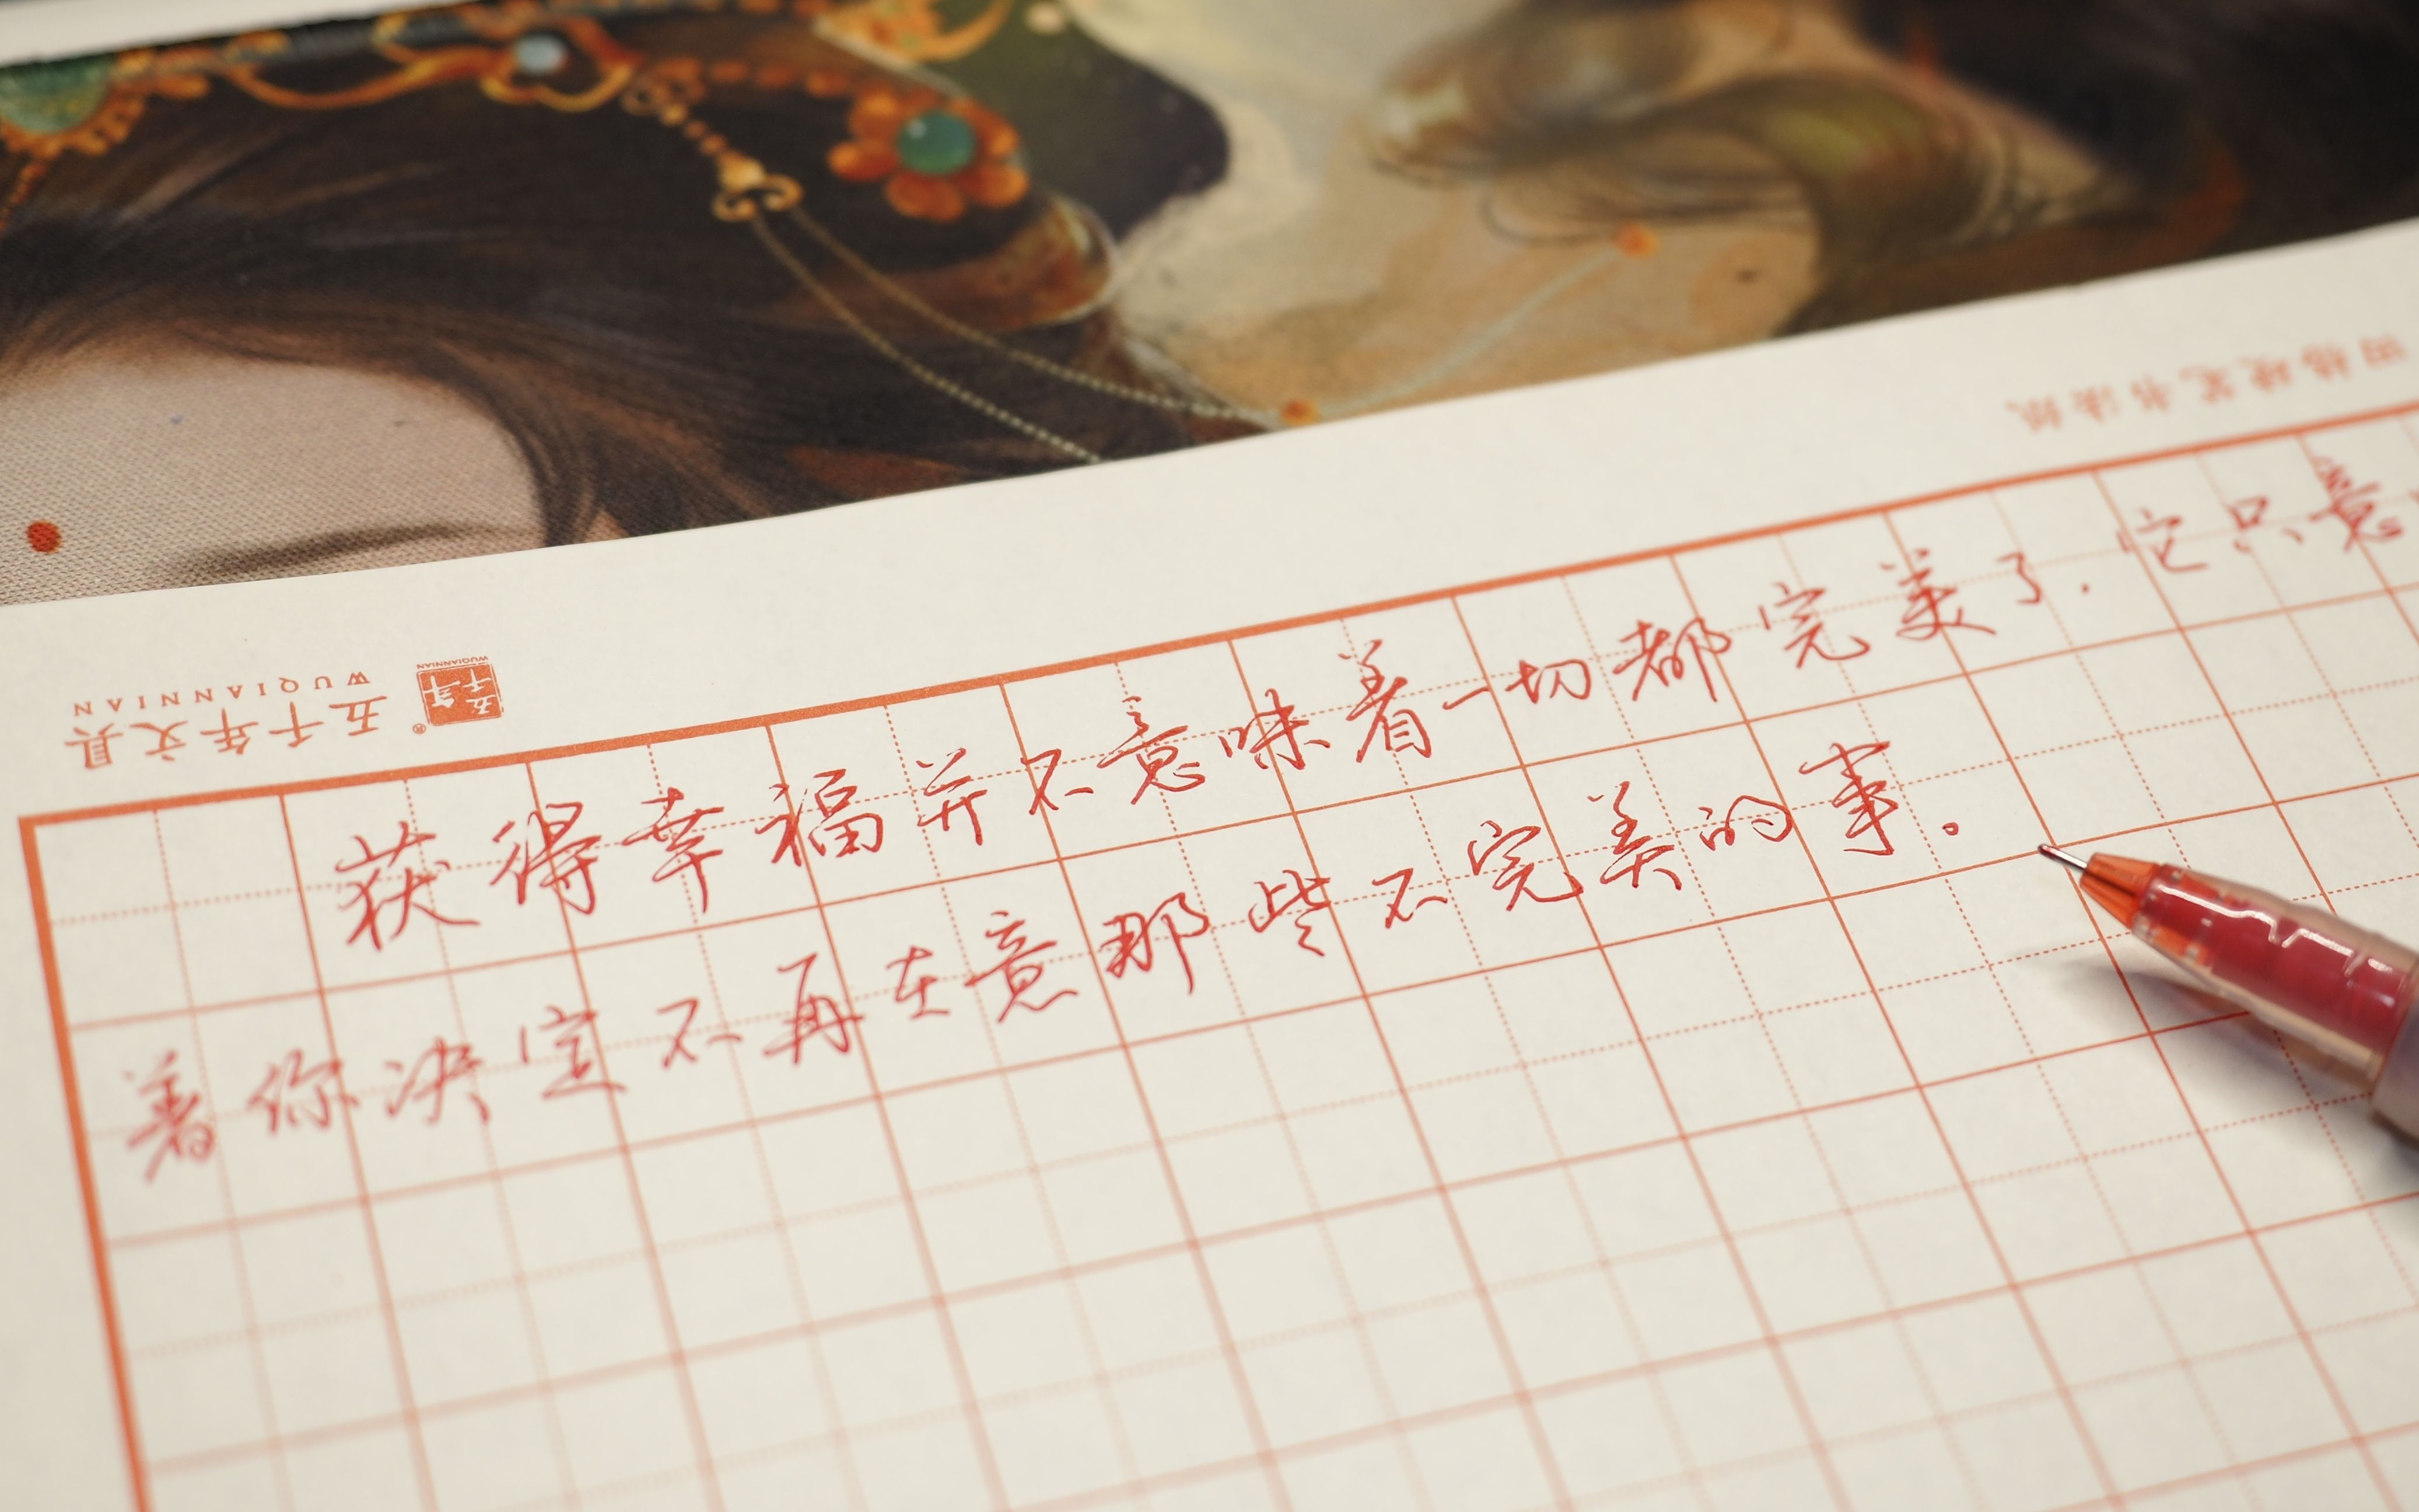 田格硬笔书法纸
五千年
WUQIANNIAN
五千年文具
WUQIANNIAN
获得幸福并不意味着一切都完美了.它只意
着你决定不再在意那些不完美的事。